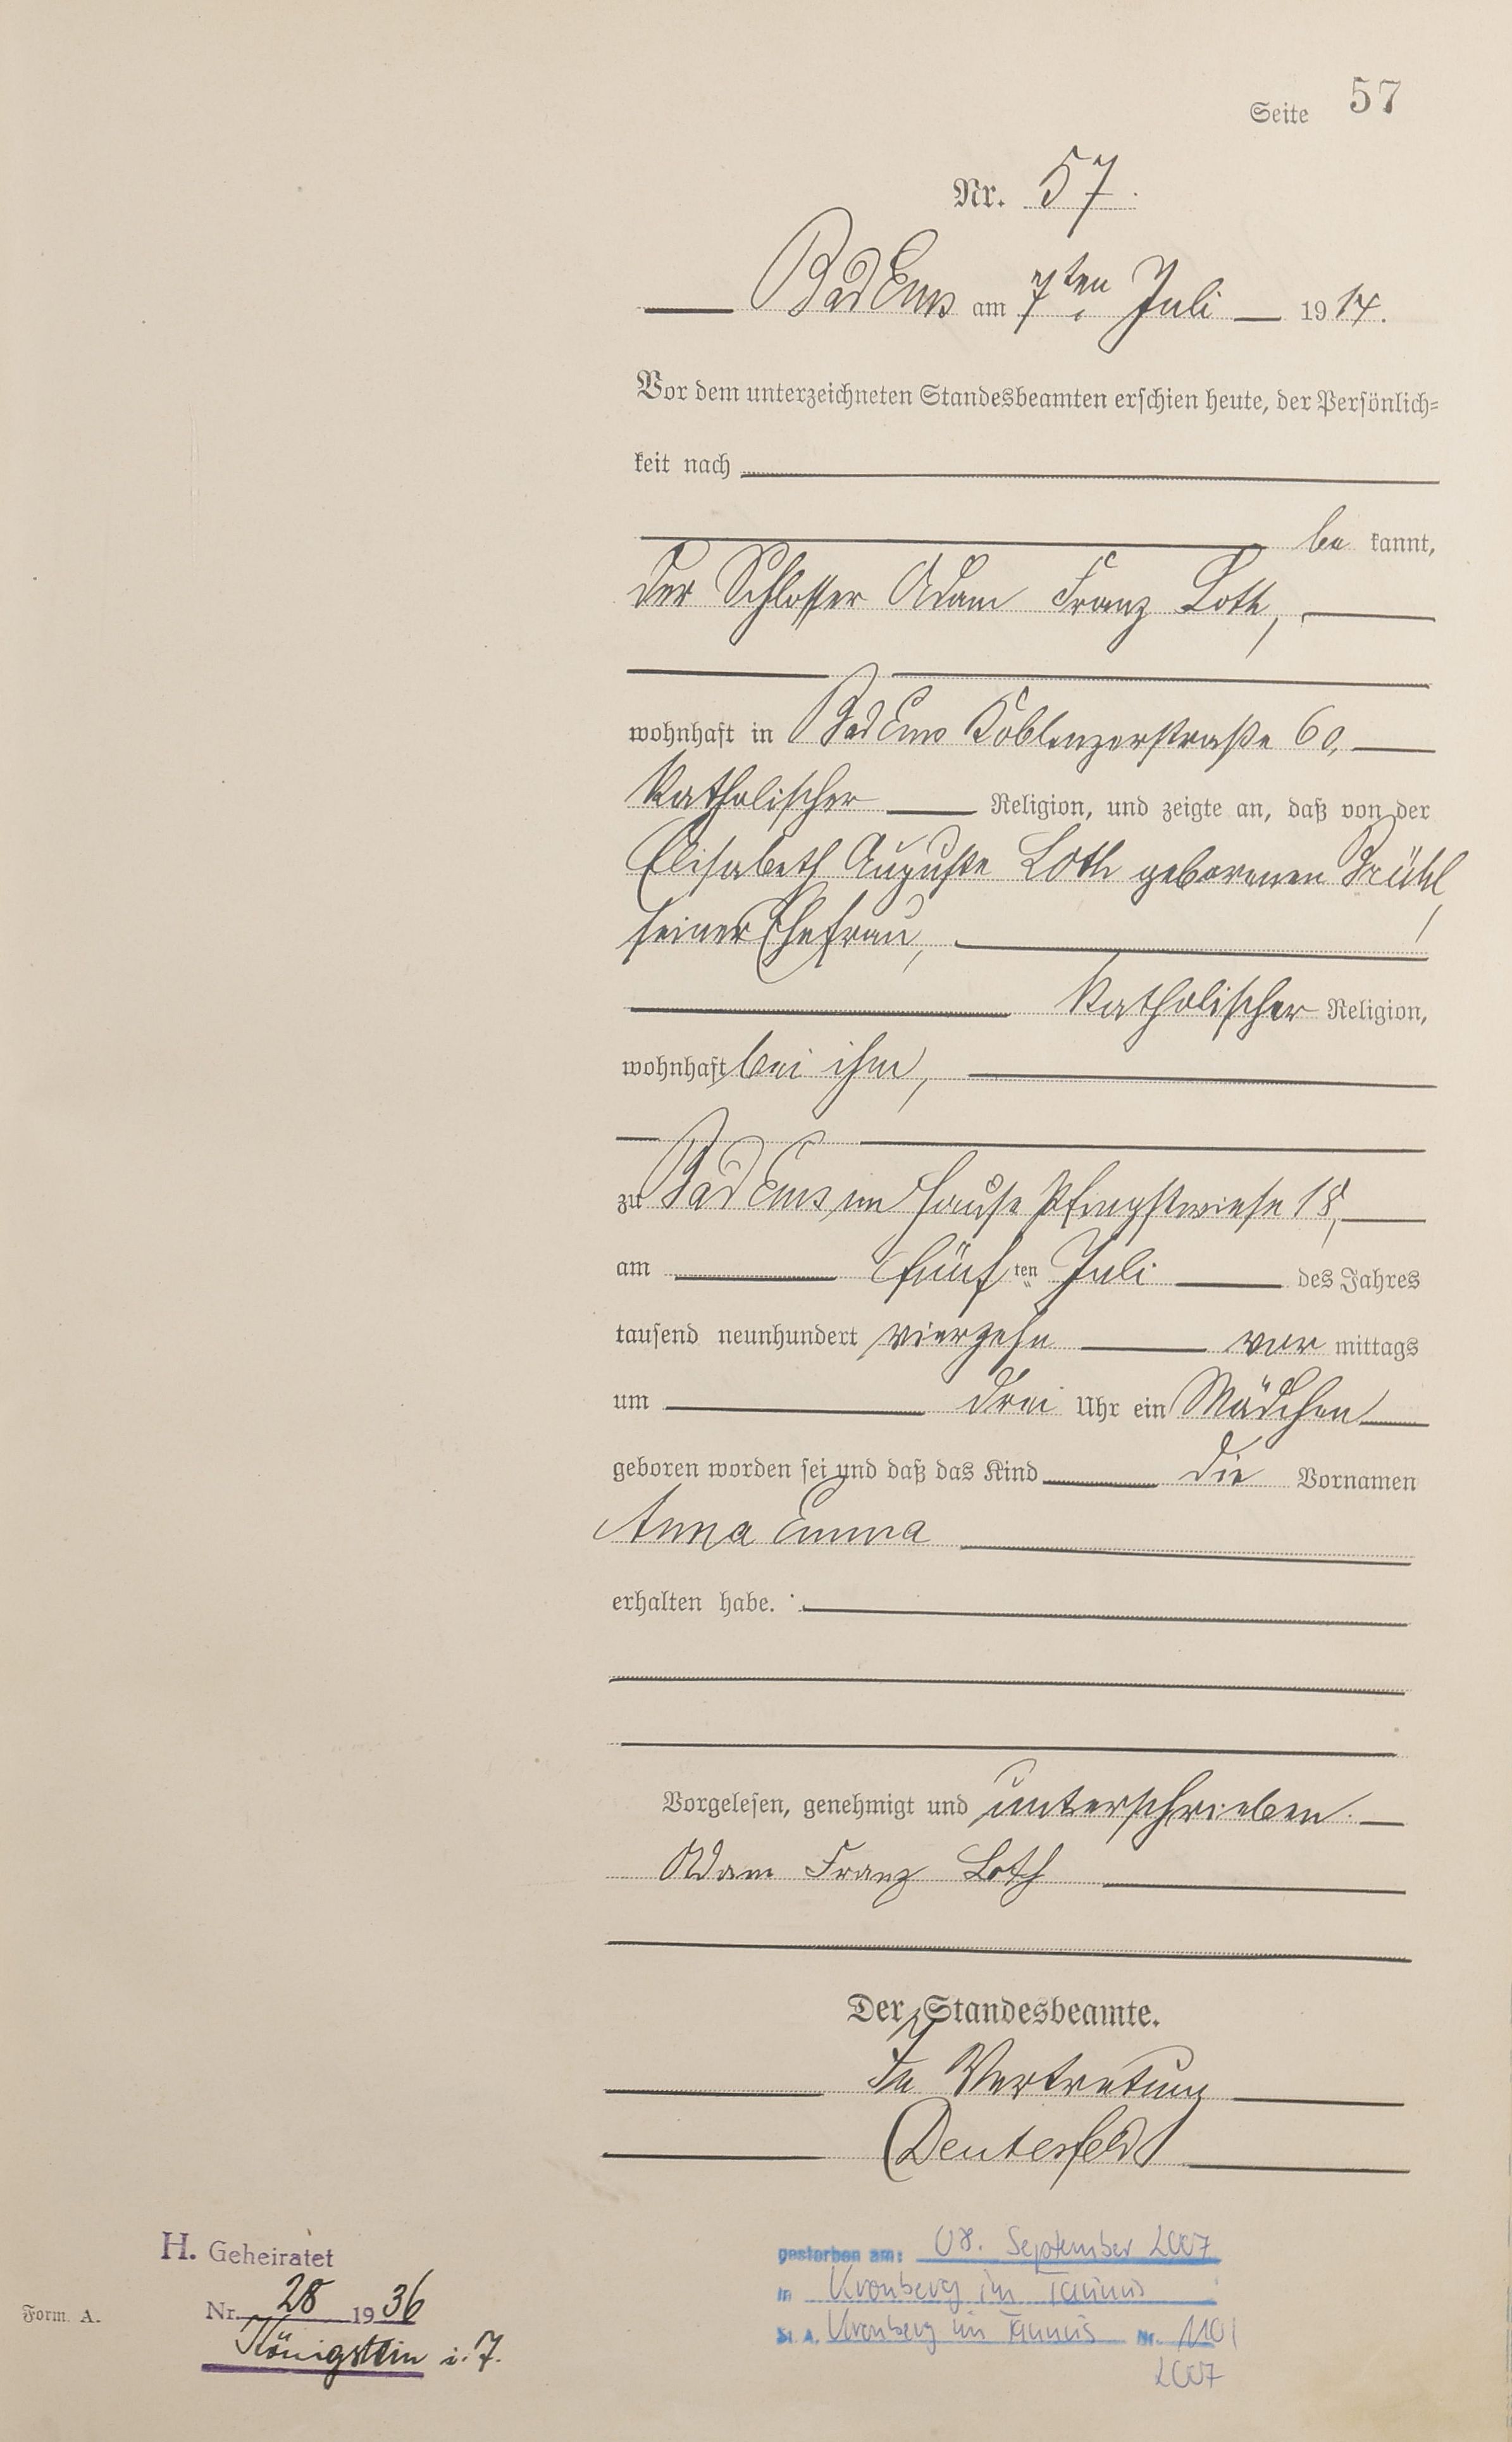 Seite 57
Nr. 57.
Bad Ems am 7ten Juli 1914.
Vor dem unterzeichneten Standesbeamten erschien heute, der Persönlich=
keit nach
be kannt,
der Schlosser Adam Franz Loth,
wohnhaft in Bad Ems Koblenzerstraße 60,
katholischer Religion, und zeigte an, daß von der
Elisabeth Auguste Loth geborenen Brühl,
seiner Ehefrau,
katholischer Religion,
wohnhaft bei ihm,
zu Bad Ems im Hause Pfingstwiese 18,
am fünf ten Juli des Jahres
tausend neunhundert vierzehn vor mittags
um drei Uhr ein Mädchen
geboren worden sei und daß das Kind die Vornamen
Anna Emma
erhalten habe.
Vorgelesen, genehmigt und unterschrieben.
Adam Franz Loth
Der Standesbeamte.
In Vertretung
Deutesfeld
H. Geheiratet
Nr. 28 1936
Königstein i. T.
Form. A.
gestorben am: 08. September 2007
in Kronberg im Taunus
St. A. Kronberg im Taunus Nr. 110/
2007